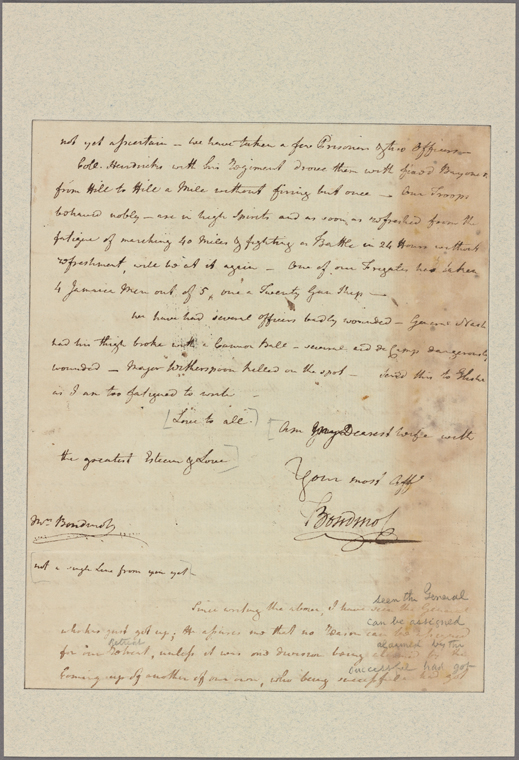 not yet ascertain — we have taken a few Prisoners & two Officers
Coll. Hendricks with his Regiment drove them with fixed Bayone
from Hill to Hill a Mile without firing but once — Our Troops
behaved nobly — are in high Spirits and as soon as refreshed from the
fatigue of marching 40 Miles & fighting a Battle in 24 Hours without
refreshment, will be at it again — One of our Frigates has taken
4 Jamaica Men out of 5, one a Twenty Gun Ship —
We have had several Officers badly wounded — General Nash
had his thigh broke with a Cannon Ball — several aid de Camps dangerously
wounded — Major Witherspoon killed on the spot — send this to Elisha
as I am too fatigued to write —
[Love to all] [Am my Dearest Wife with
the greatest Esteem & Love]
Your most Afft
Boudinot
Mrs. Boudinot
[not a single Line from you yet]
Since writing the above, I have seen the General
seen the General
who has just got up; He assures me that no Reason can be assigned
can be assigned
for our Retreat, unless it was one division being alarmed by the
Retreat
alarmed by the
coming up of another of our own, who being successful had got
successful had got